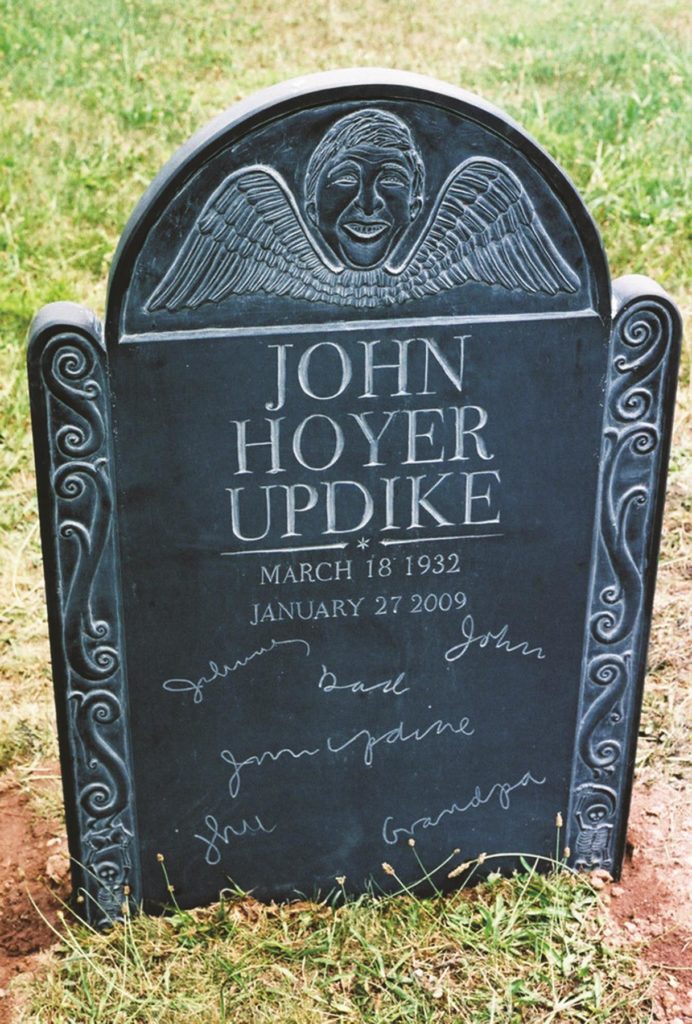 JOHN
HOYER
UPDIKE
MARCH 18 1932
JANUARY 27 2009
John
Dad
John Updike
Grandpa